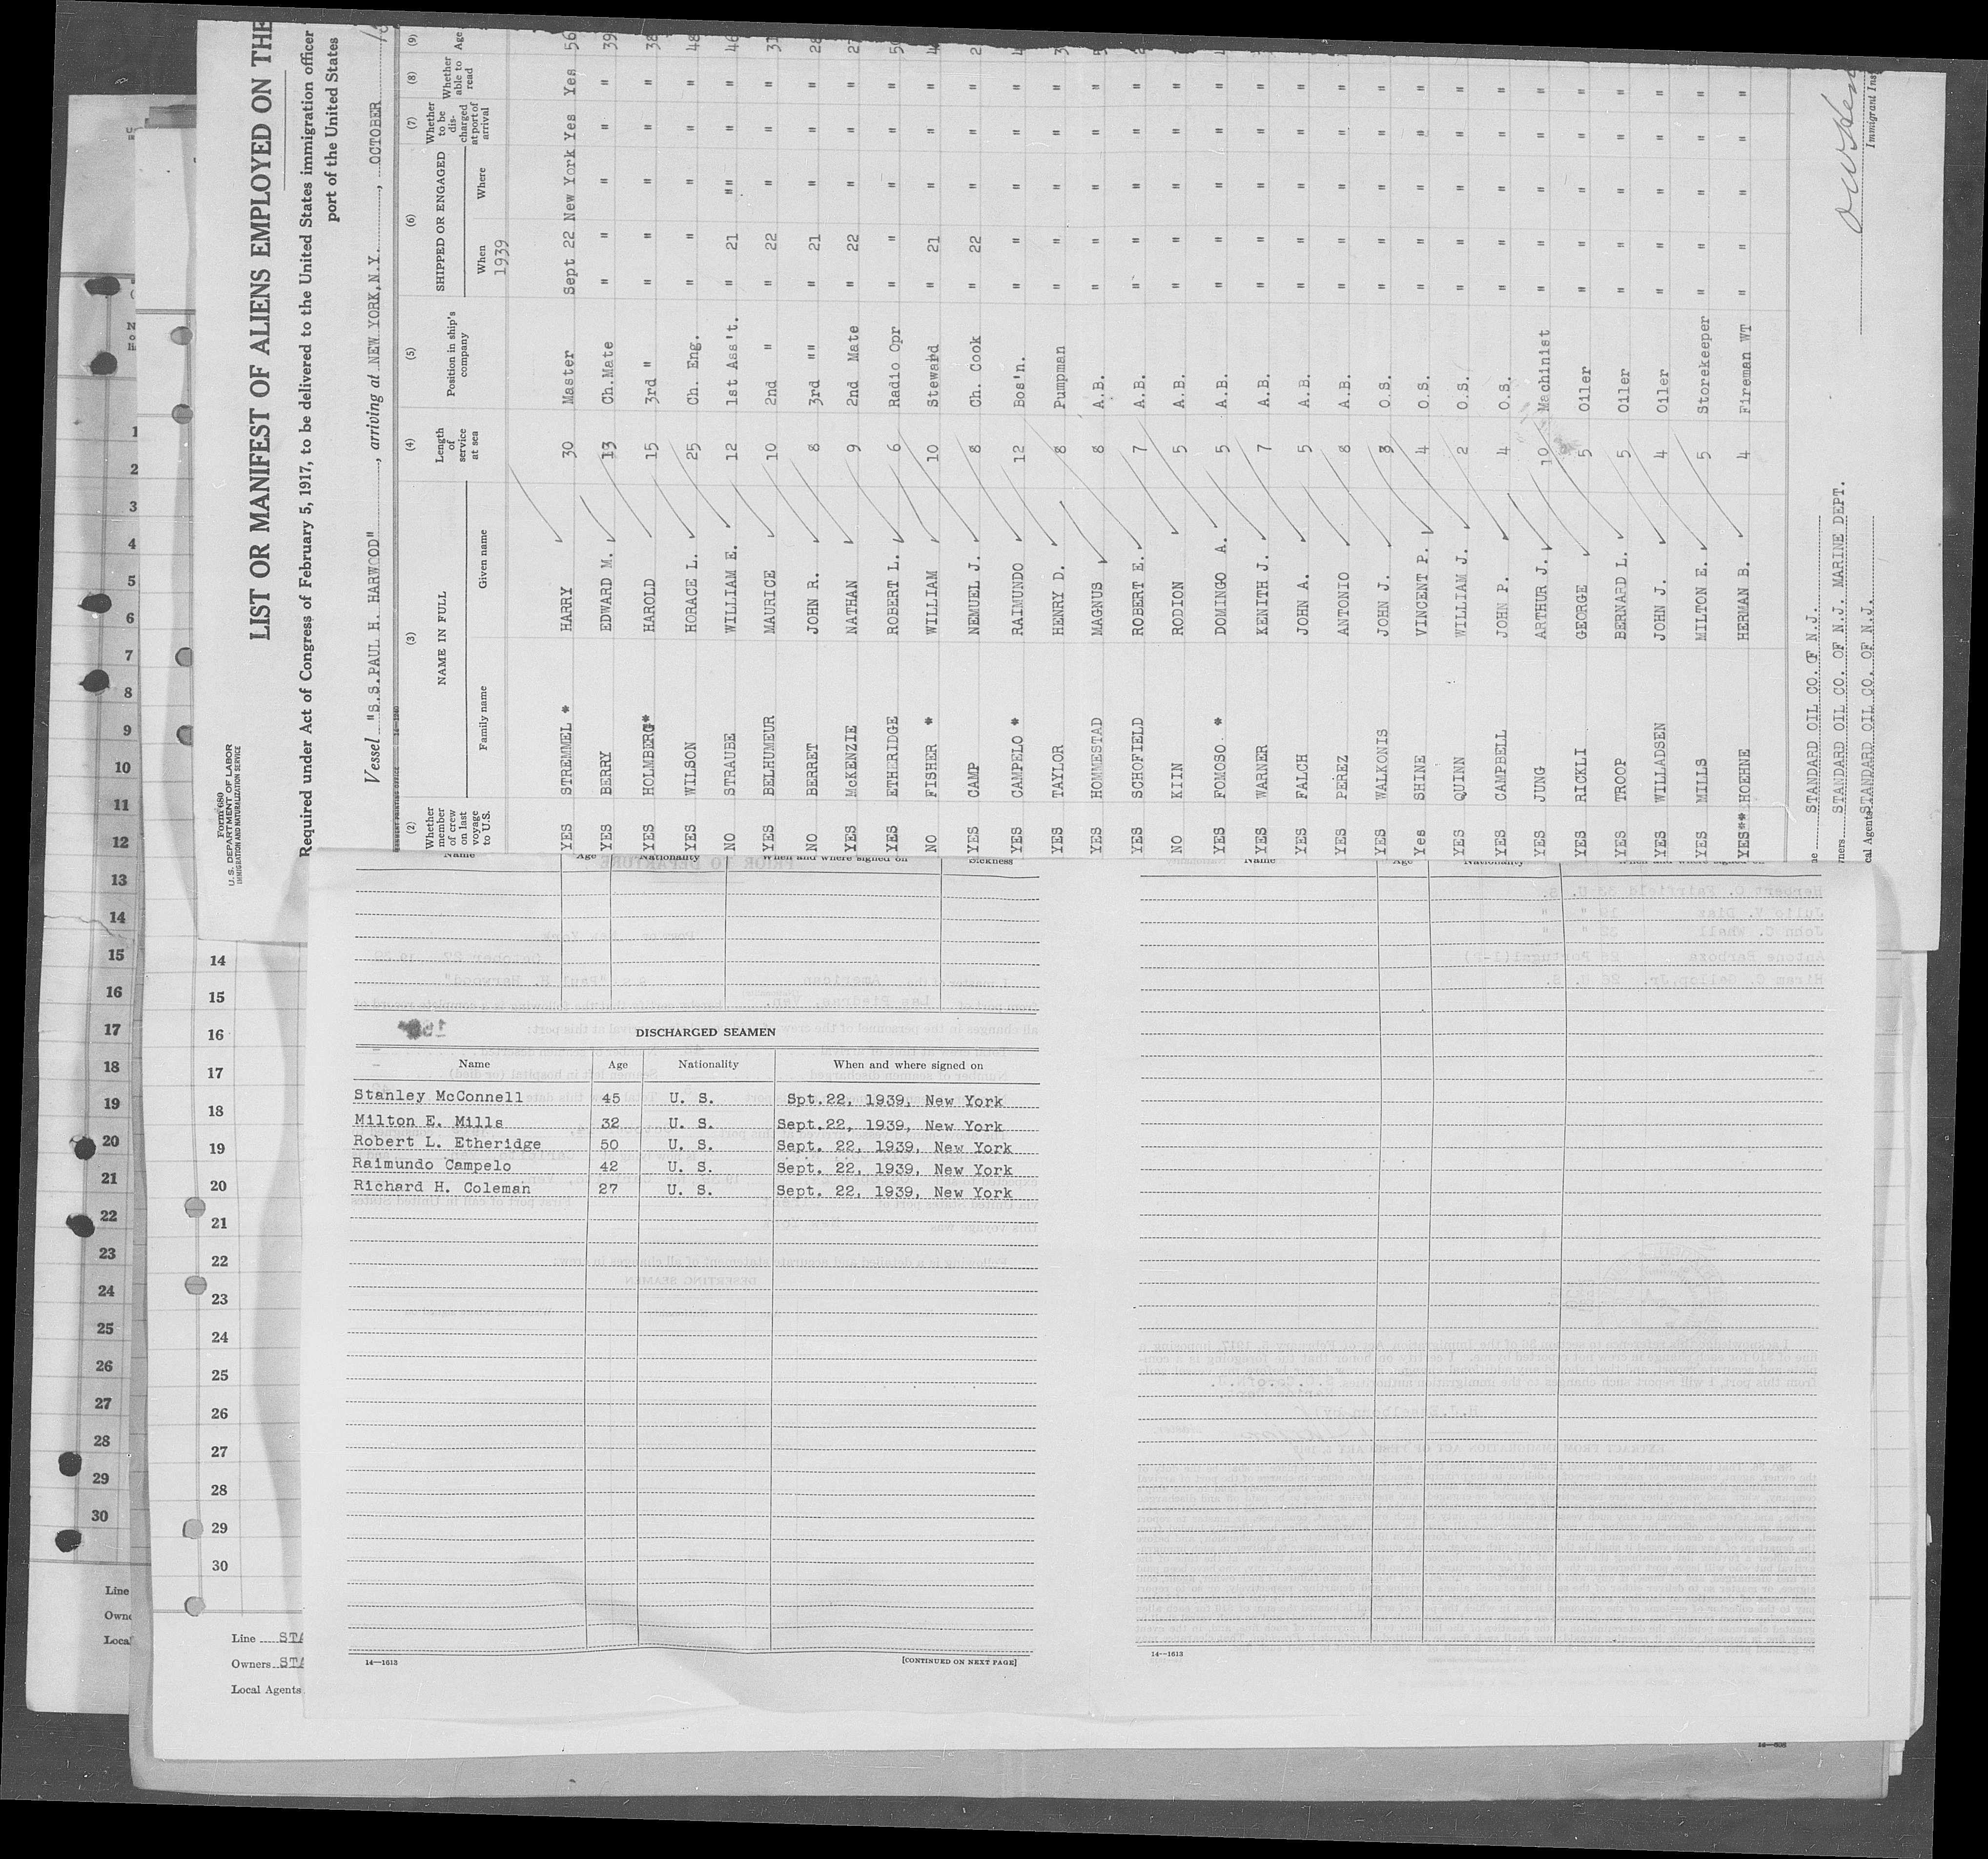 Form 680
U. S. DEPARTMENT OF LABOR
IMMIGRATION AND NATURALIZATION SERVICE
LIST OR MANIFEST OF ALIENS EMPLOYED ON THE
Required under Act of Congress of February 5, 1917, to be delivered to the United States immigration officer
port of the United States
Vessel "S.S.PAUL H. HARWOOD", arriving at NEW YORK,N.Y., OCTOBER
(2) (3) (4) (5) (6) (7) (8) (9)
Whether member of crew on last voyage to U.S. NAME IN FULL Family name Given name Length of service at sea Position in ship's company SHIPPED OR ENGAGED When Where Whether to be discharged at port of arrival Whether able to read Age
1939
YES STREMMEL * HARRY 30 Master Sept 22 New York Yes Yes 56
YES BERRY EDWARD M. 13 Ch.Mate " " " " " 39
YES HOLMBERG* HAROLD 15 3rd " " " " " " 38
YES WILSON HORACE L. 25 Ch. Eng. " " " " " 48
NO STRAUBE WILLIAM E. 12 1st Ass't. " 21 "" " " 46
YES BELHUMEUR MAURICE 10 2nd " " 22 " " " 31
NO BERRET JOHN R. 8 3rd "" " 21 " " " 28
YES McKENZIE NATHAN 9 2nd Mate " 22 " " " 27
YES ETHERIDGE ROBERT L. 6 Radio Opr " " " " " 50
NO FISHER * WILLIAM 10 Steward " 21 " " "
YES CAMP NEMUEL J. 8 Ch. Cook " 22 " " "
YES CAMPELO * RAIMUNDO 12 Bos'n. " " " " "
YES TAYLOR HENRY D. 8 Pumpman " " " " "
YES HOMMESTAD MAGNUS 8 A.B. " " " " "
YES SCHOFIELD ROBERT E. 7 A.B. " " " " "
NO KIIN RODION 5 A.B. " " " " "
YES FOMOSO * DOMINGO A. 5 A.B. " " " " "
YES WARNER KENITH J. 7 A.B. " " " " "
YES FALCH JOHN A. 5 A.B. " " " " "
YES PEREZ ANTONIO 8 A.B. " " " " "
YES WALKONIS JOHN J. 3 O.S. " " " " "
Yes SHINE VINCENT P. 4 O.S. " " " " "
YES QUINN WILLIAM J. 2 O.S. " " " " "
YES CAMPBELL JOHN P. 4 O.S. " " " " "
YES JUNG ARTHUR J. 10 Machinist " " " " "
YES RICKLI GEORGE 5 Oiler " " " " "
YES TROOP BERNARD L. 5 Oiler " " " " "
YES WILLADSEN JOHN J. 4 Oiler " " " " "
YES MILLS MILTON E. 5 Storekeeper " " " " "
YES** HOEHNE HERMAN B. 4 Fireman WT " " " " "
STANDARD OIL CO. OF N.J.
STANDARD OIL CO. OF N.J. MARINE DEPT.
cal Agents STANDARD OIL CO. OF N.J.
Immigrant Ins
Name Age Nationality When and where signed on Sickness
DISCHARGED SEAMEN
Name Age Nationality When and where signed on
Stanley McConnell 45 U. S. Spt.22, 1939, New York
Milton E. Mills 32 U. S. Sept.22, 1939, New York
Robert L. Etheridge 50 U. S. Sept. 22, 1939, New York
Raimundo Campelo 42 U. S. Sept. 22, 1939, New York
Richard H. Coleman 27 U. S. Sept. 22, 1939, New York
14—1613
[CONTINUED ON NEXT PAGE]
Name Age Nationality When and where signed on
14—1613
1
2
3
4
5
6
7
8
9
10
11
12
13
14
15
16
17
18
19
20
21
22
23
24
25
26
27
28
29
30
Line
Owne
Local
14
15
16
17
18
19
20
21
22
23
24
25
26
27
28
29
30
Line STA
Owners STA
Local Agents